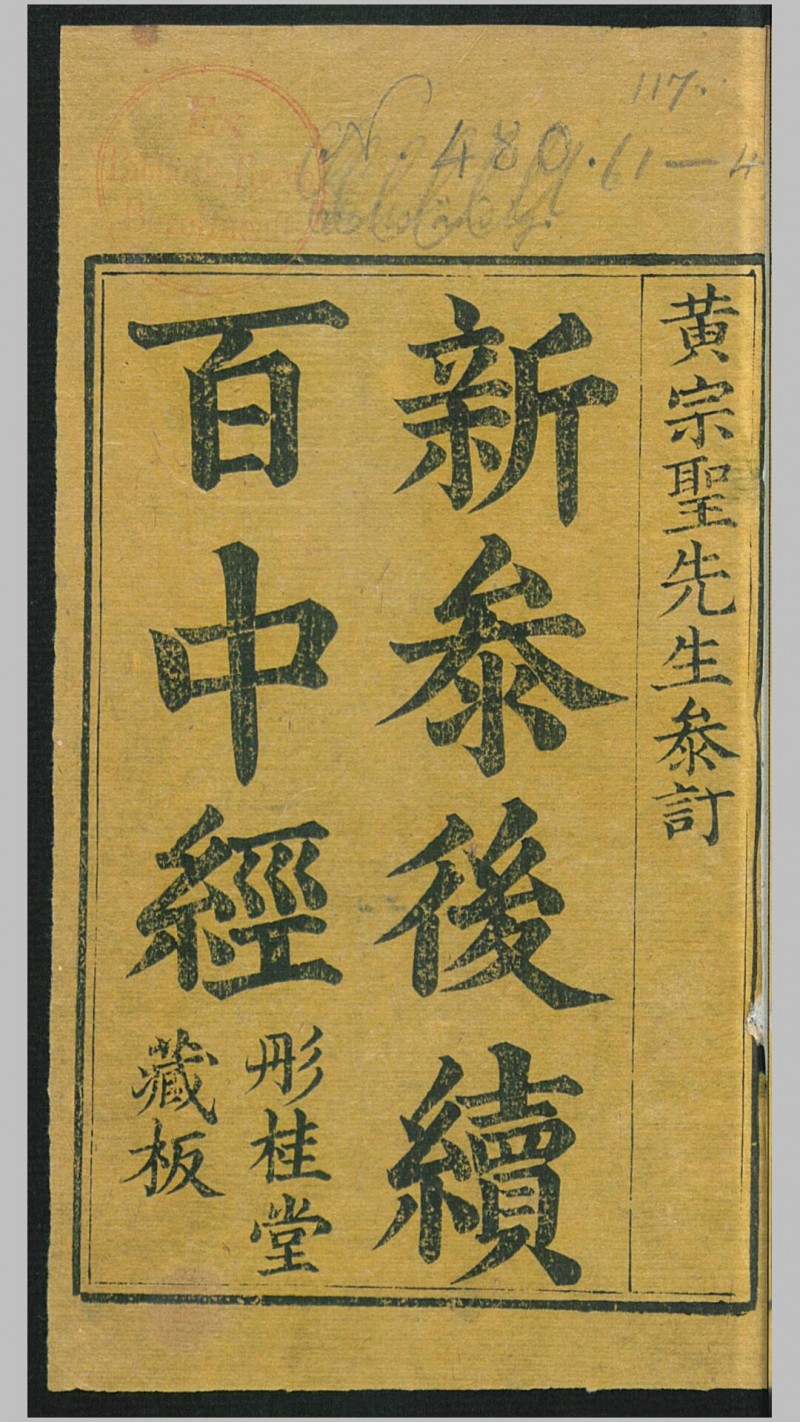 117.
N. 480. 61-4
Ex
黄宗聖先生叅訂
新叅後續
百中經
彤桂堂
藏板